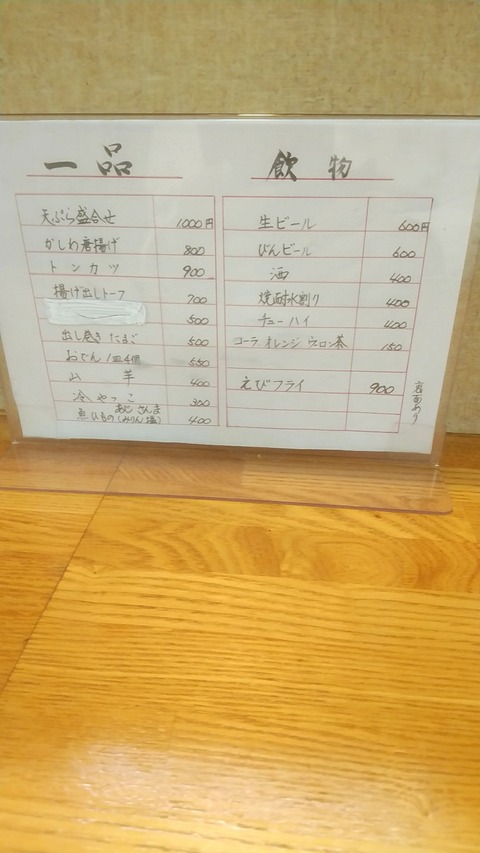 一品
天ぷら盛合せ 1000円
かしわ唐揚げ 800
トンカツ 900
揚げ出しトーフ 700
500
出し巻きたまご 500
おでん1皿4個 550
山芋 400
冷やっこ 300
あじ さんま
魚ひもの(みりん 塩) 400
飲物
生ビール 600円
びんビール 600
酒 400
焼酎水割り 400
チューハイ 400
コーラ オレンジ ウーロン茶 150
えびフライ 900
裏面あり